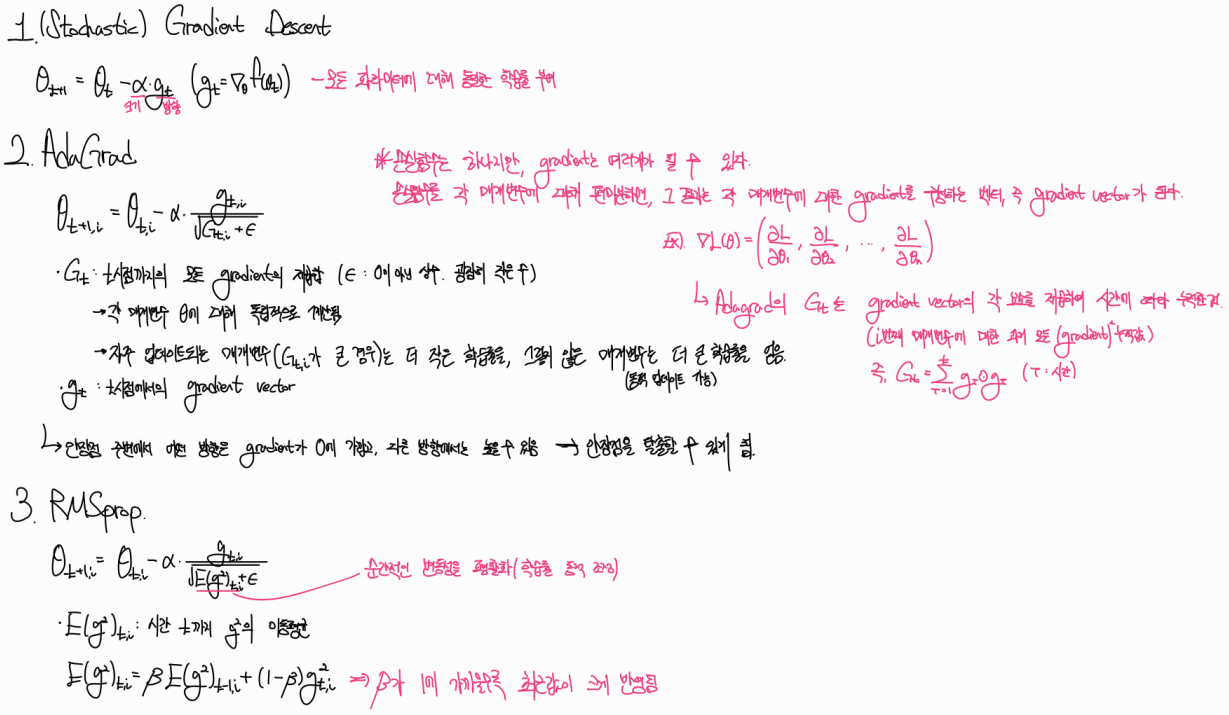 1. (Stochastic) Gradient Descent
θ_{t+1} = θ_t - α·g_t (g_t = ∇_θ f(θ_t)) - 모든 파라미터에 대해 동일한 학습률 부여
크기 방향
2. AdaGrad
* 손실함수는 하나지만, gradient는 여러개가 될 수 있다.
손실함수를 각 매개변수에 대해 편미분하면, 그 결과는 각 매개변수에 대한 gradient를 구성하는 벡터, 즉 gradient vector가 된다.
θ_{t+1,i} = θ_{t,i} - α· g_{t,i} / √(G_{t,i} + ε)
EX) ∇L(θ) = (∂L/∂θ_1, ∂L/∂θ_2, ..., ∂L/∂θ_n)
↳ Adagrad의 G_t는 gradient vector의 각 요소를 제곱하여 시간에 따라 누적한 것.
(i번째 매개변수에 대한 과거 모든 (gradient)^2 누적값)
즉, G_t = Σ_{τ=1}^{t} g_τ ⊙ g_τ (τ : 시간)
· G_t : t시점까지의 모든 gradient의 제곱합 (ε : 0이 아닌 상수. 굉장히 작은 수)
→ 각 매개변수 θ에 대해 독립적으로 계산됨
→ 자주 업데이트되는 매개변수(G_{t,i}가 큰 경우)는 더 작은 학습률을, 그렇지 않은 매개변수는 더 큰 학습률을 얻음.
(동적 업데이트 가능)
· g_t : t시점에서의 gradient vector
↳ 안장점 주변에서 어떤 방향은 gradient가 0에 가깝고, 다른 방향에서는 높을 수 있음 → 안장점을 탈출할 수 있게 됨.
3. RMSprop.
θ_{t+1,i} = θ_{t,i} - α· g_{t,i} / √(E(g²)_{t,i} + ε)
순간적인 변동성을 평활화(학습률 동적 조정)
· E(g²)_{t,i} : 시간 t까지 g²의 이동평균
E(g²)_{t,i} = βE(g²)_{t-1,i} + (1-β)g²_{t,i} → β가 1에 가까울수록 최근값이 크게 반영됨